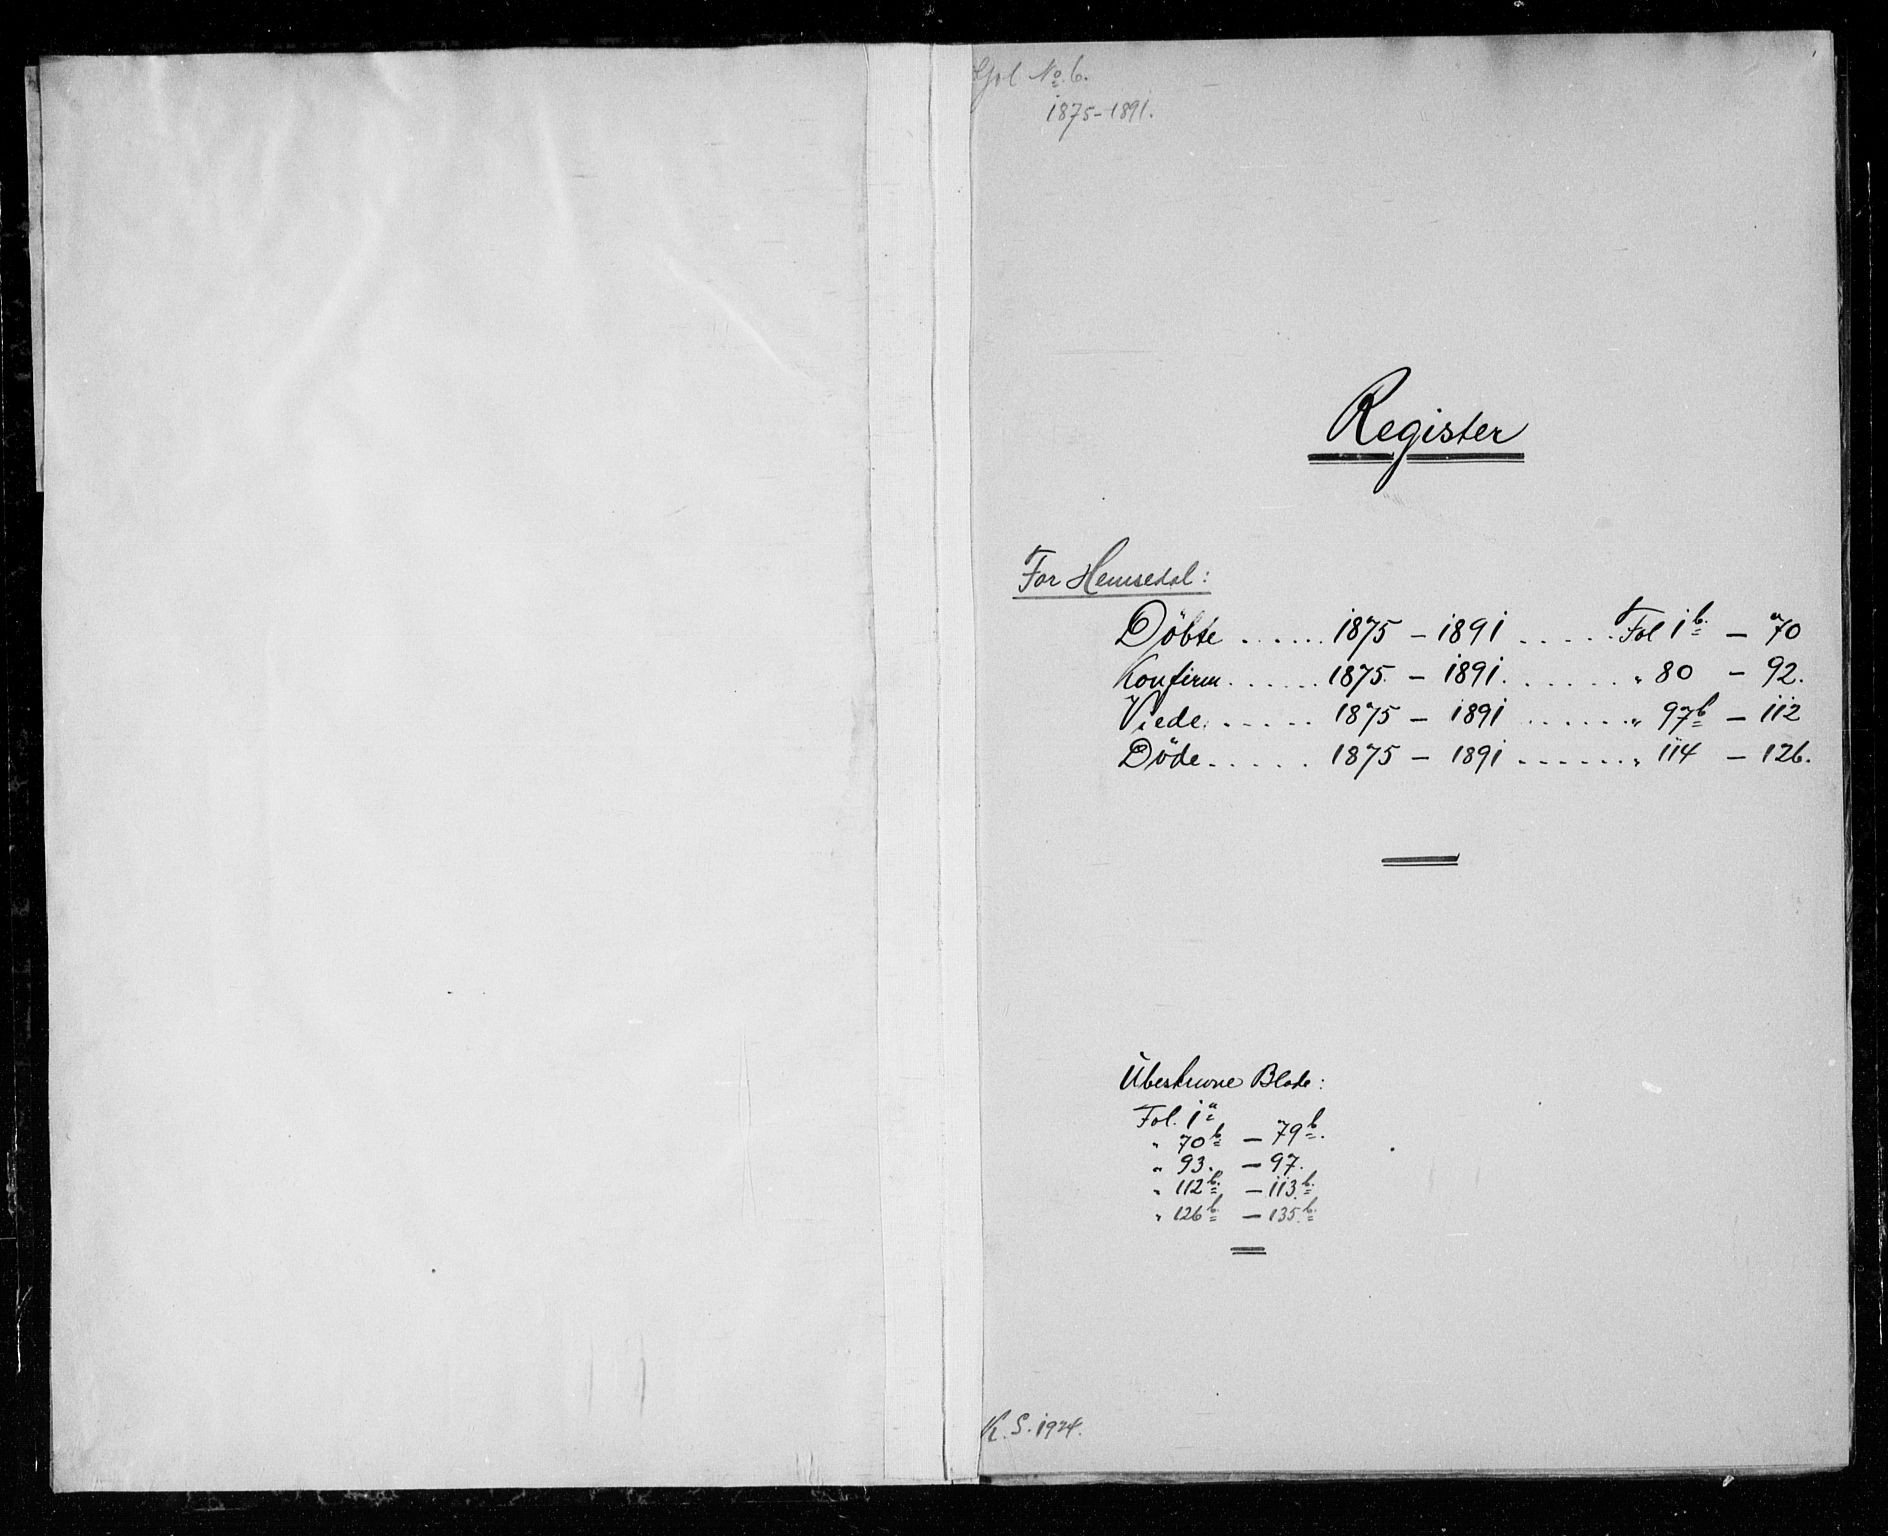 Gol No 6.
1875-1891.
Register
For Hemsedal:
Döbte ...... 1875 - 1891 ..... Fol 1b - 70
Konfirm. ..... 1875. - 1891. ...... " 80 - 92.
Viede. ..... 1875 - 1891 ...... " 97b - 112
Döde. .... 1875 - 1891 ...... " 114 - 126.
Ubeskrevne Blade:
Fol. 1a
" 70b - 79b.
" 93. - 97.
" 112b. - 113.b.
" 126b. - 135.b.
K. S. 1924.